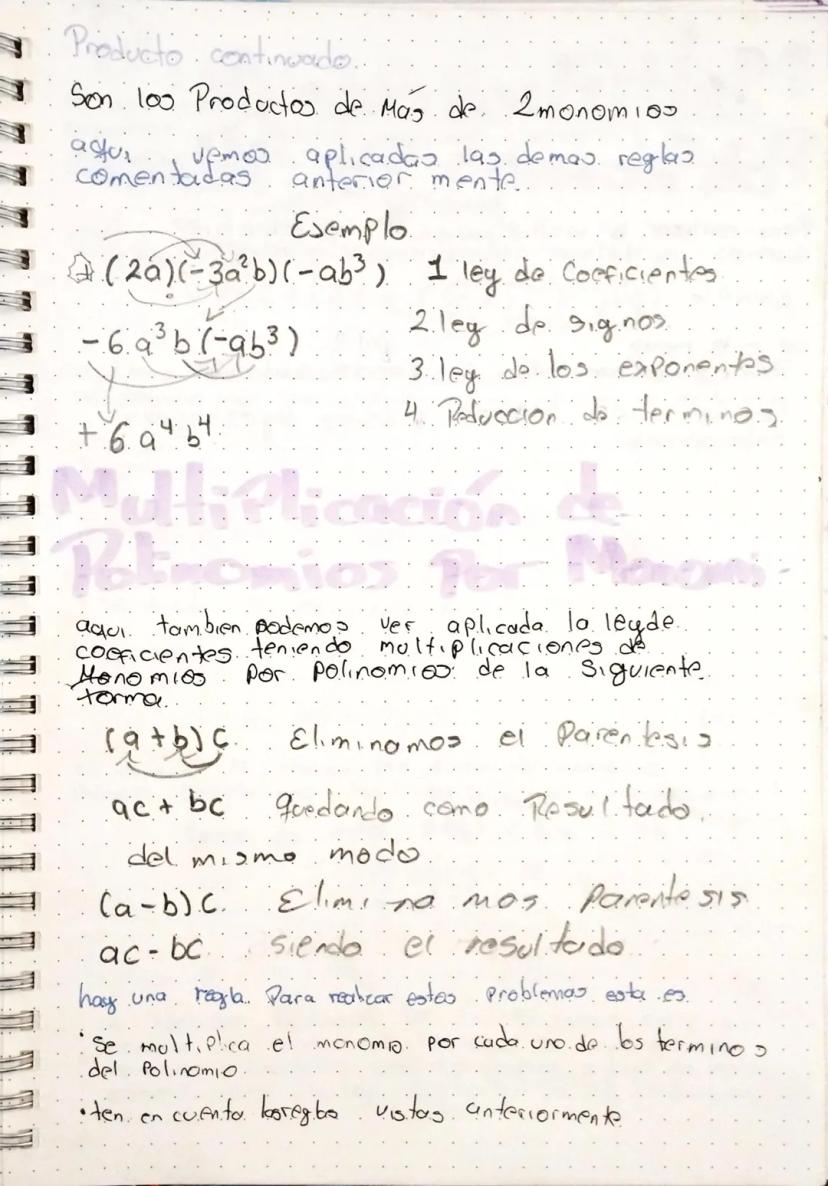 Producto continuado.
Son los Productos de Más de 2monomios
aqui vemos aplicadas las demas reglas
comentadas anterior mente.
Esemplo
(2a)(-3a²b)(-ab³) 1 ley de Coeficientes
2.ley de signos
-6a³b(-ab³)
3.ley de los exponentes
+6a⁴b⁴ 4. Reduccion de terminos.
Multiplicación de
Polinomios Por Monomi-
aqui tambien podemos ver aplicada la leyde
coeficientes teniendo multiplicaciones de
Monomios por polinomios de la siguiente
forma.
(a+b)c Eliminamos el Parentesis
ac+bc quedando como Resultado.
del mismo modo.
(a-b)c. Elimi na mos parentesis
ac-bc siendo el resultado
hay una regla Para realizar estos problemas esta es.
•Se multiplica el monomio por cada uno de los terminos
del Polinomio.
•ten en cuenta lasreglas vistas anteriormente